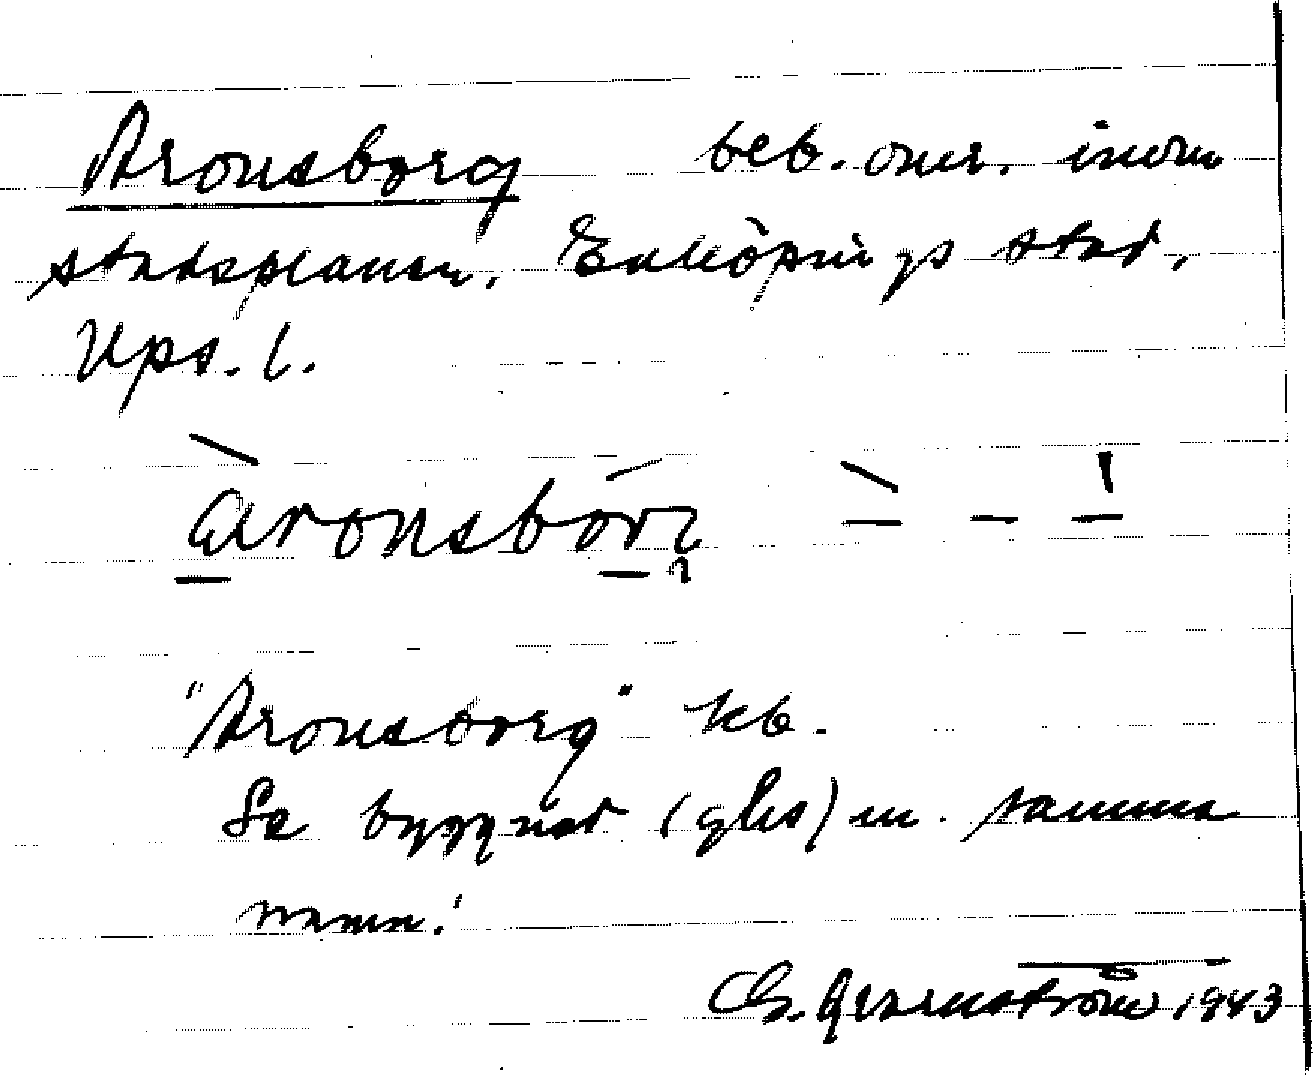 Aronsborg beb. omr. inom
stadsplanen. Enköpings stad,
Ups. l.
àronsbórj
"Aronsborg" kb.
Se byggnad (ghs) m. samma
namn!
G. Qvarnström 1943